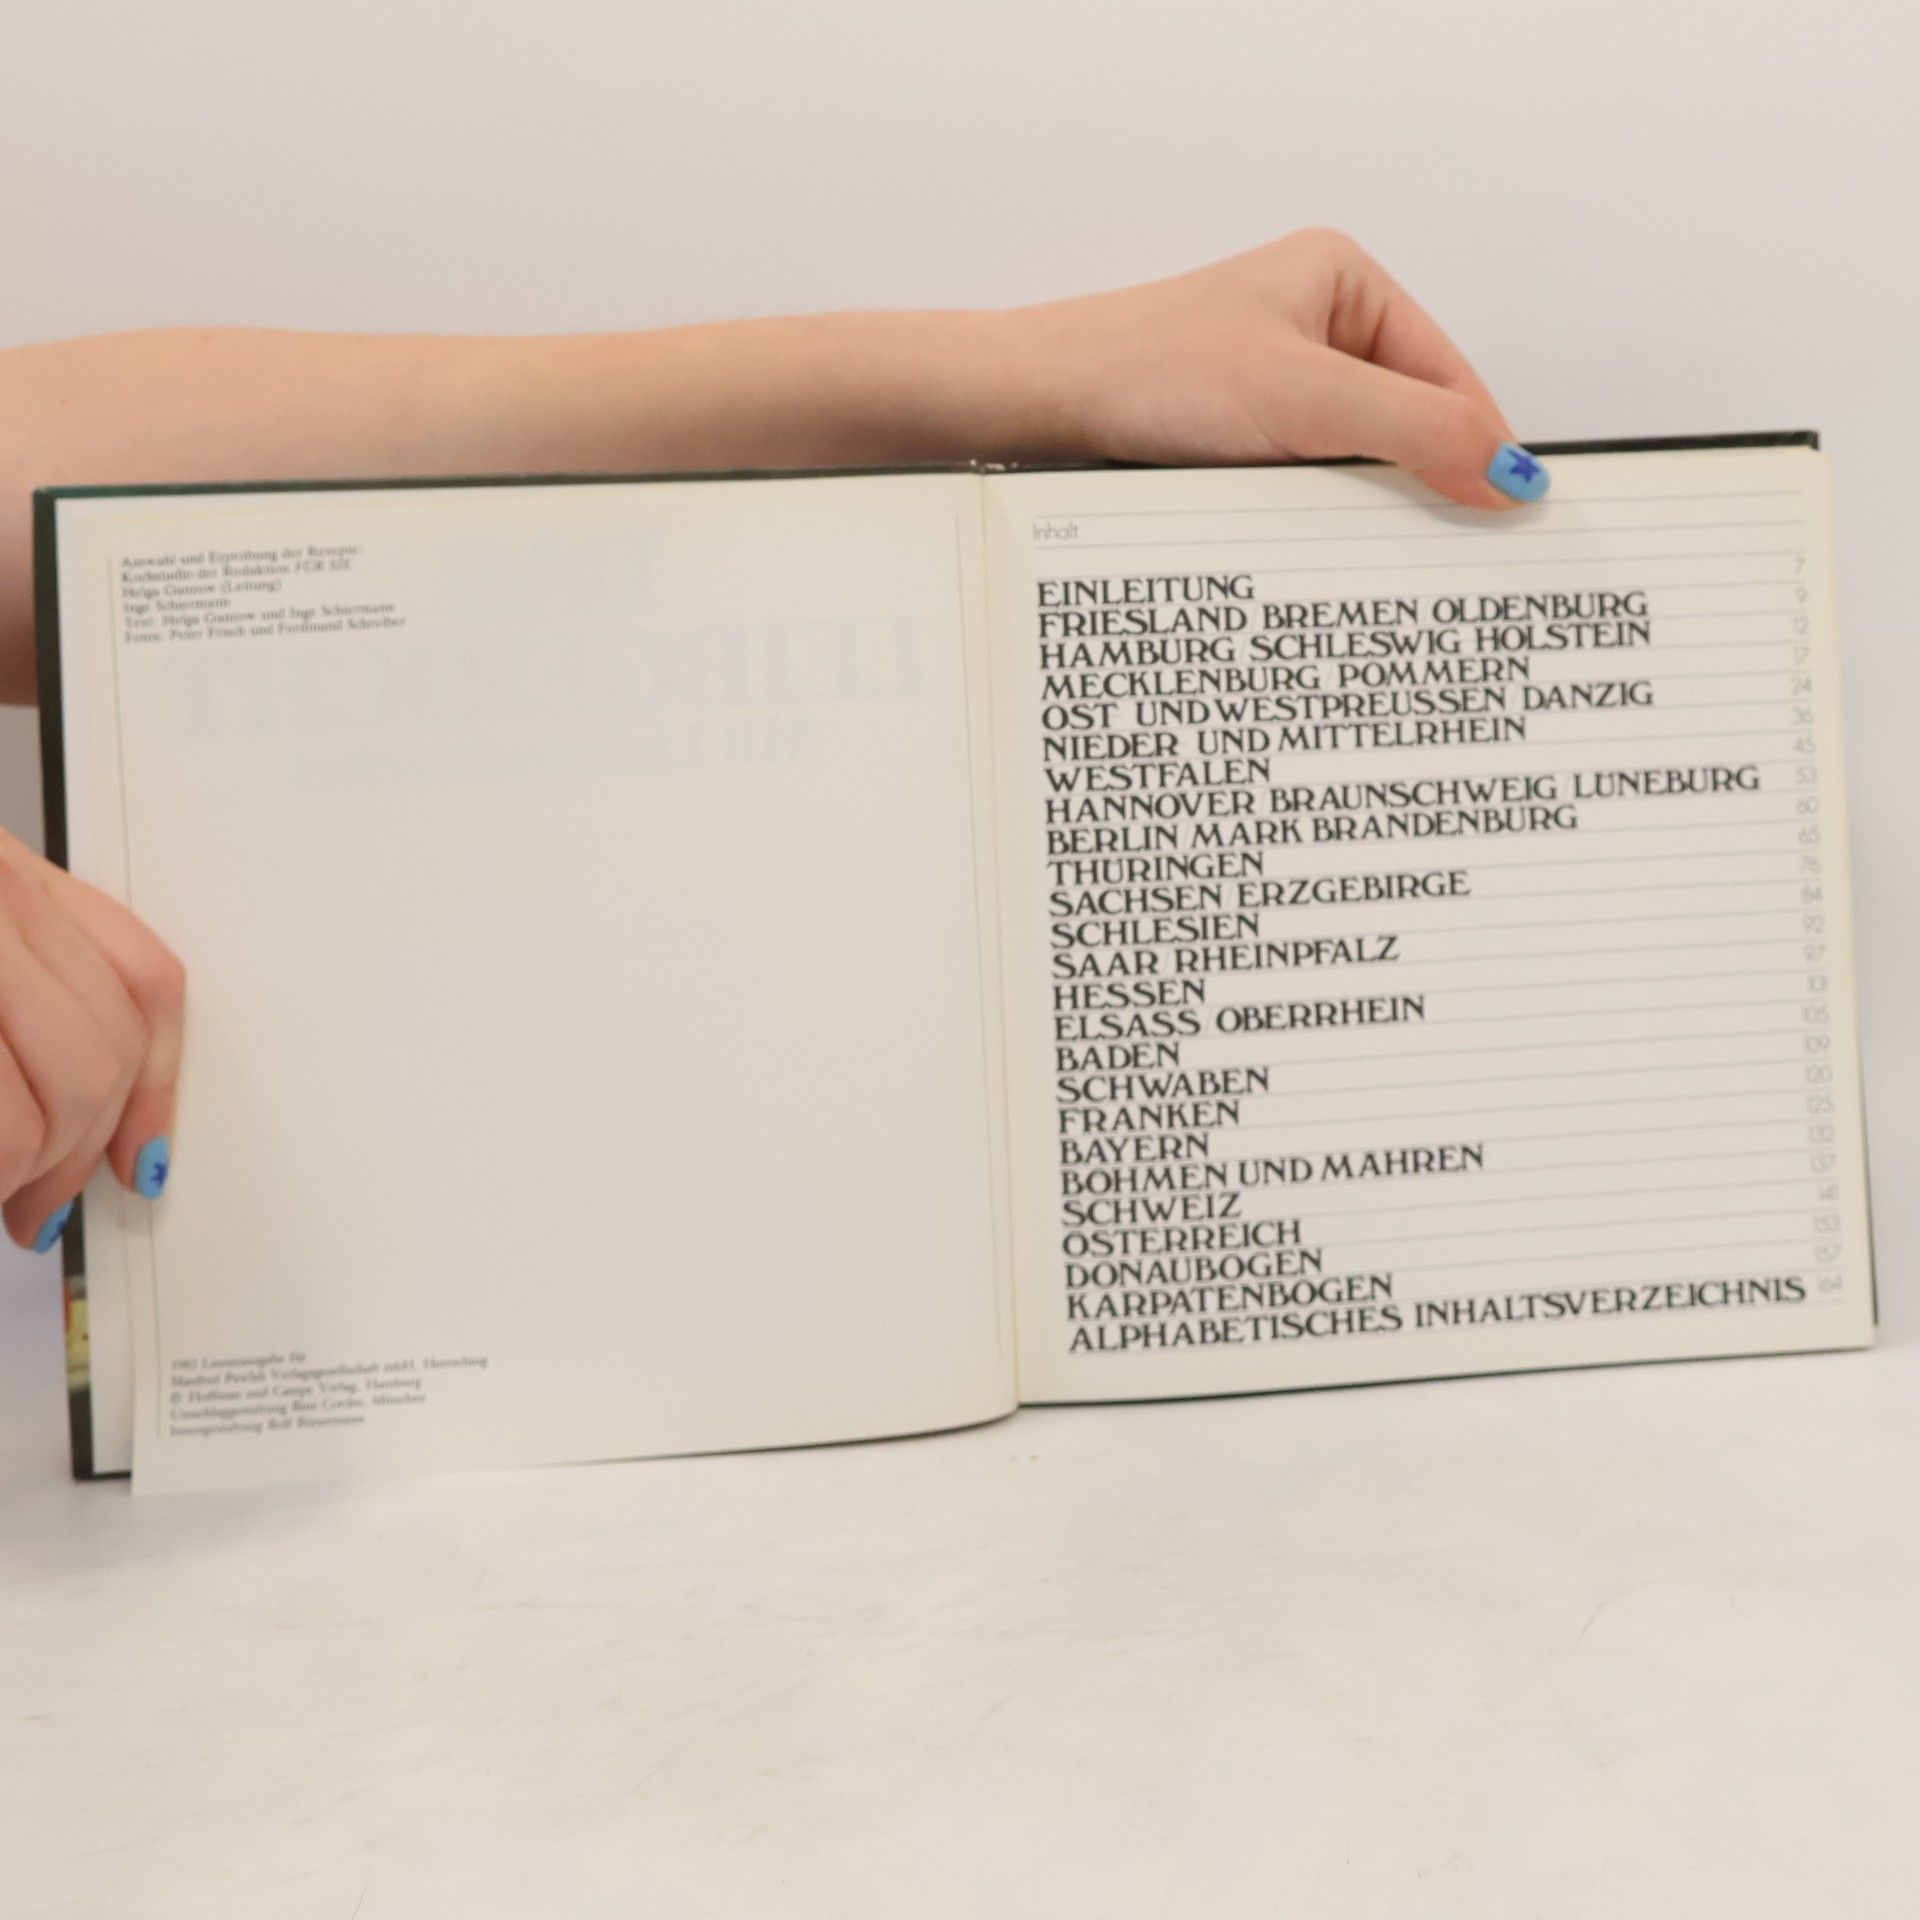 Auswahl und Erprobung der Rezepte:
Kochstudio der Redaktion FÜR SIE
Helga Gunzow (Leitung)
Inge Schiermann
Text: Helga Gunzow und Inge Schiermann
Fotos: Peter Frisch und Ferdinand Schreiber
1982 Lizenzausgabe für
Manfred Pawlak Verlagsgesellschaft mbH, Herrsching
© Hoffman und Campe Verlag, Hamburg
Umschlaggestaltung Bine Cordes, München
Innengestaltung Rolf
Inhalt
EINLEITUNG 7
FRIESLAND/BREMEN OLDENBURG 9
HAMBURG/SCHLESWIG HOLSTEIN 13
MECKLENBURG/POMMERN 17
OST UND WESTPREUSSEN/DANZIG 24
NIEDER UND MITTELRHEIN 36
WESTFALEN 45
HANNOVER/BRAUNSCHWEIG LÜNEBURG 53
BERLIN/MARK BRANDENBURG 60
THÜRINGEN 65
SACHSEN/ERZGEBIRGE 76
SCHLESIEN 84
SAAR/RHEINPFALZ 93
HESSEN 97
ELSASS/OBERRHEIN
BADEN
SCHWABEN
FRANKEN
BAYERN
BÖHMEN UND MÄHREN
SCHWEIZ
ÖSTERREICH
DONAUBOGEN
KARPATENBOGEN
ALPHABETISCHES INHALTSVERZEICHNIS